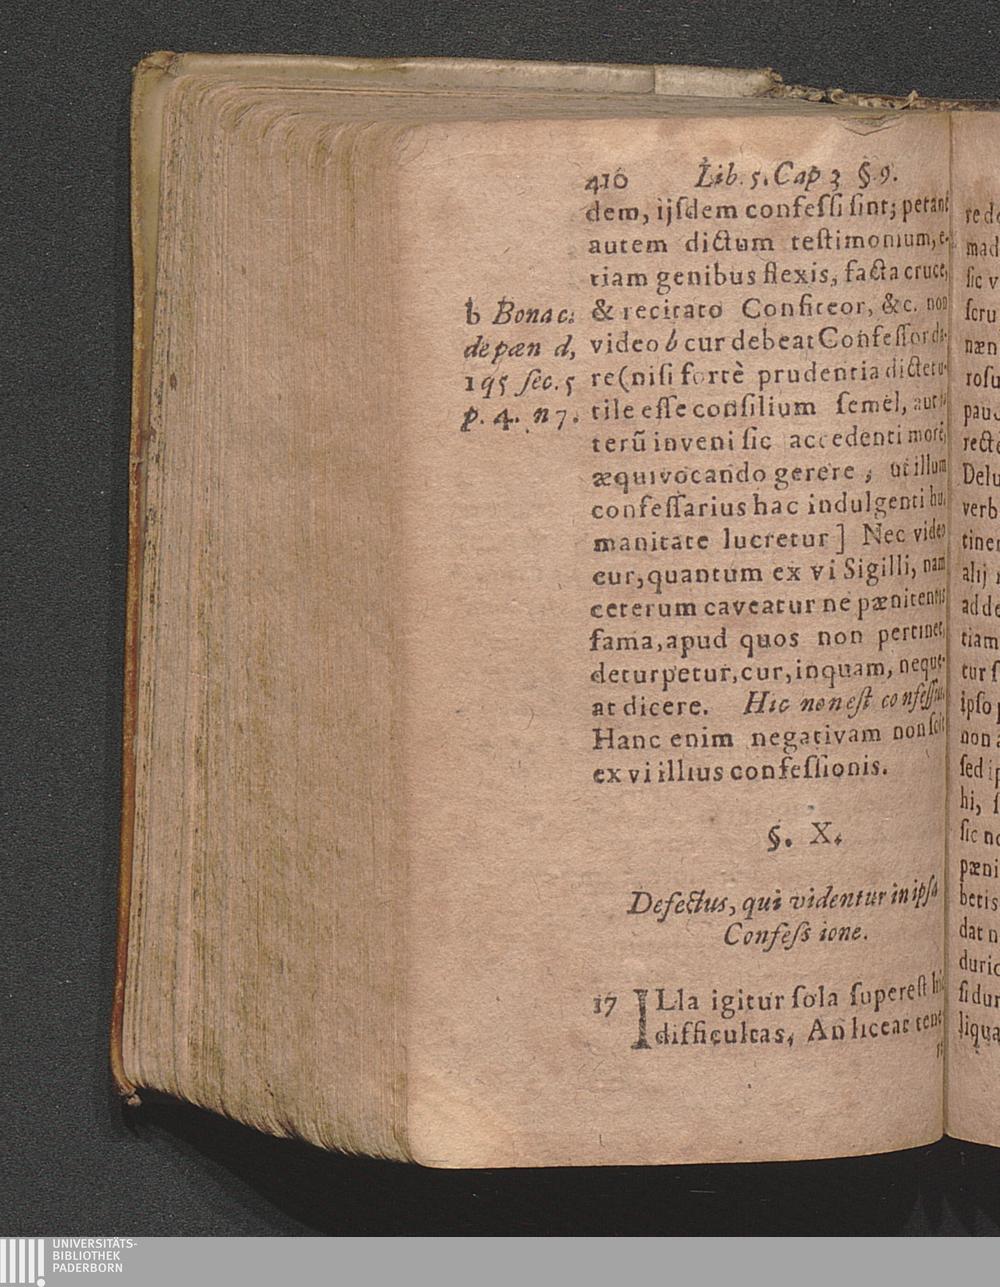 410 Lib. 5. Cap 3 §. 9.
dem, ijſdem confeſſi ſint; petant
autem dictum teſtimonium, e-
tiam genibus flexis, facta cruce,
& recitato Confiteor, &c. non
video b cur debeat Confeſſor da-
re (niſi fortè prudentia dictet u-
tile eſſe conſilium ſemel, aut
terũ inveni ſic accedenti morẽ,
æquivocando gerere; ut illum
confeſſarius hac indulgenti hu-
manitate lucretur] Nec video
cur, quantum ex vi Sigilli, nam
ceterum caveatur ne pænitentis
fama, apud quos non pertinet,
deturpetur, cur, inquam, neque-
at dicere. Hic non eſt confeſſus,
Hanc enim negativam non ſcit
ex vi illius confeſſionis.
b Bonac:
de pæn d,
1 q 5 ſec. 5
p. 4. n 7.
§. X.
Defectus, qui videntur in ipſa
Confeſs ione.
17 ILla igitur ſola ſupereſt hîc
difficultas, An liceat
re
mad
ſic v
ſcru
næn
roſu
recte
Delu
verb
tiner
alij
adde
tiam
tur ſ
ipſo
non
ſed ip
hi, ſ
ſic
pæni
betis
dat n
ſi dur
liqua
UNIVERSITÄTS-
BIBLIOTHEK
PADERBORN